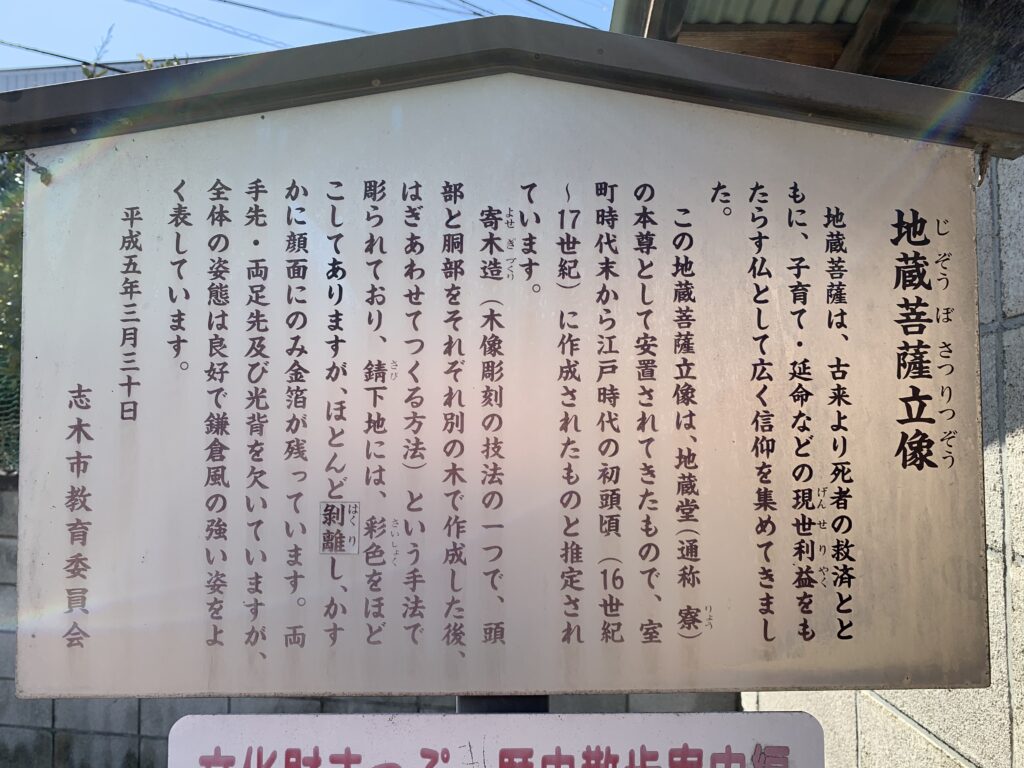 地蔵菩薩立像
じぞうぼさつりつぞう
地蔵菩薩は、古来より死者の救済とと
もに、子育て・延命などの現世利益をも
げんせりやく
たらす仏として広く信仰を集めてきまし
た。
この地蔵菩薩立像は、地蔵堂(通称 寮)
りょう
の本尊として安置されてきたもので、室
町時代末から江戸時代の初頭頃(16世紀
〜17世紀)に作成されたものと推定され
ています。
寄木造(木像彫刻の技法の一つで、頭
よせぎづくり
部と胴部をそれぞれ別の木で作成した後、
はぎあわせてつくる方法)という手法で
彫られており、錆下地には、彩色をほど
さび
さいしょく
こしてありますが、ほとんど剝離し、かす
はくり
かに顔面にのみ金箔が残っています。両
手先・両足先及び光背を欠いていますが、
全体の姿態は良好で鎌倉風の強い姿をよ
く表しています。
平成五年三月三十日
志木市教育委員会
文化財まっぷ 歴史散歩案内編